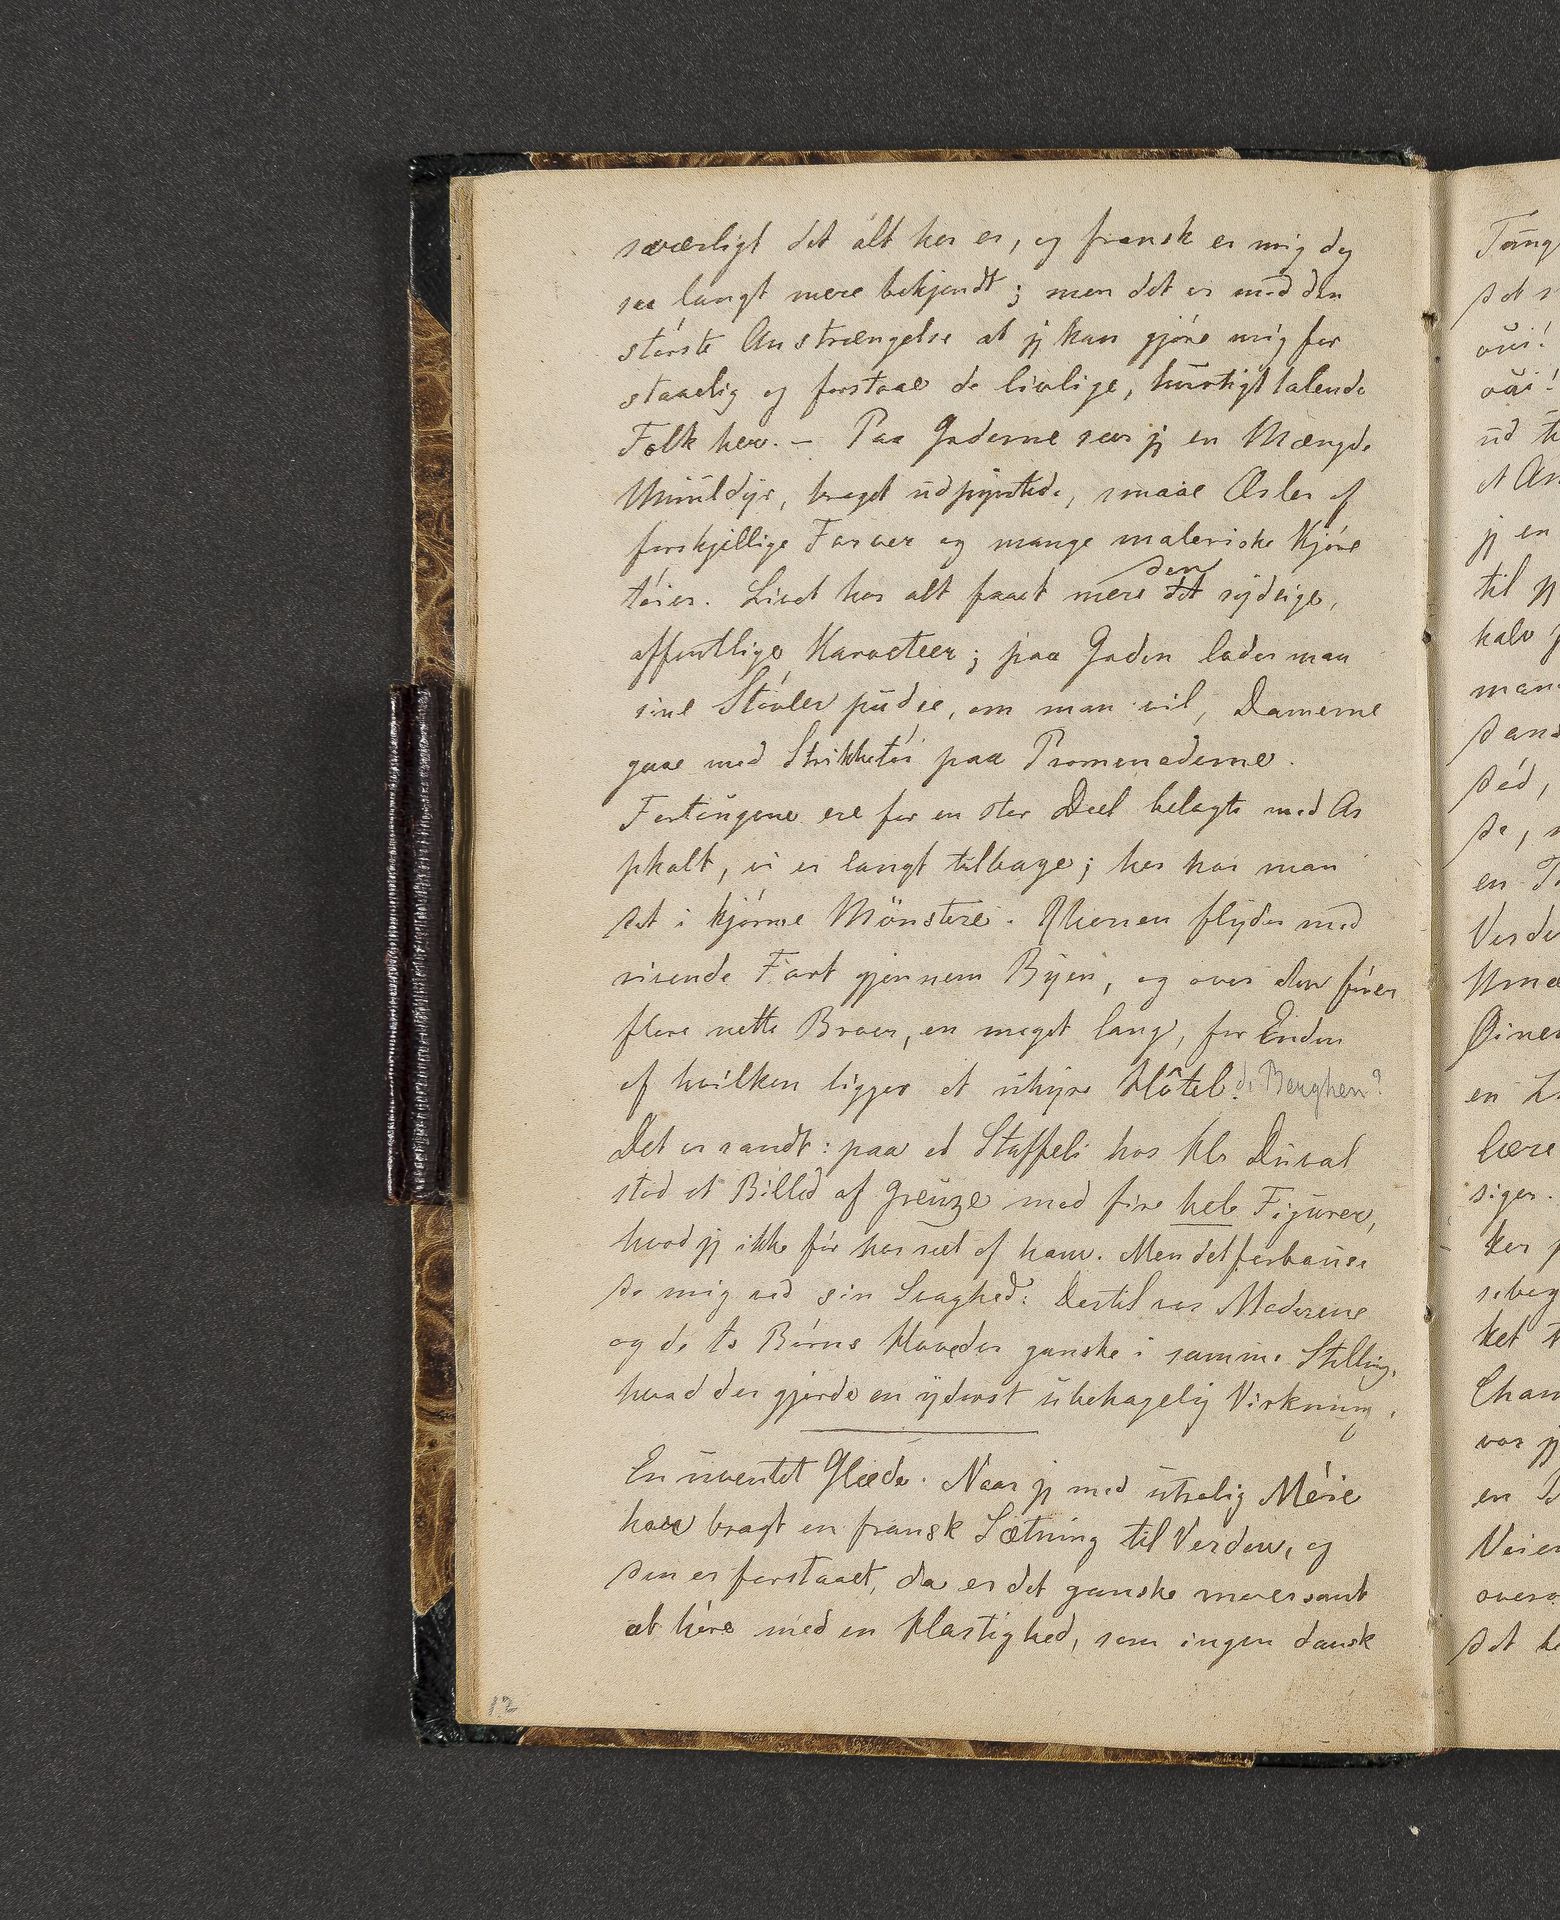 sværligt det alt her er, og fransk er mig dog
saa langt mere bekjendt; men det er med den
største Anstrængelse at jeg kan gjøre mig for
staaelig og forstaae de livlige, hurtigt talende
Folk her. – Paa Gaderne saa jeg en Mængde
Muuldyr, braget udpyntede, smaae Æsler af
forskjellige Farver og mange maleriske Kjøre
tøier. Livet har alt faaet mere det den sydlige,
offentlige Karacteer; paa Gaden lader man
sine Støvler pudse, om man vil, Damerne
gaae med Strikketøi paa Promenaderne.
Fortougene ere for en stor Deel belagte med As
phalt, vi er langt tilbage; her har man
det i kjønne Mönstere. Rhonen flyder med
rivende Fart gjennem Byen, og over den fører
flere nette Broer, en meget lang, for Enden
af hvilken ligger et uhyre Hôtel. de Berghen?
Det er sandt: paa et Staffeli hos Hr Duval
stod et Billed af Greuze med fire hele Figurer,
hvad jeg ikke før har seet af ham. Men det forbause
de mig ved sin Svaghed: Dertil var Moderene
og de to Børns Hoveder ganske i samme Stilling,
hvad der gjorde en yderst ubehagelig Virkning.
En uventet Glæde. Naar jeg med utrolig Møie
have bragt en fransk Sætning til Verden, og
den er forstaaet, da er det ganske morsomt
at høre med en Hastighed, som ingen dansk
12